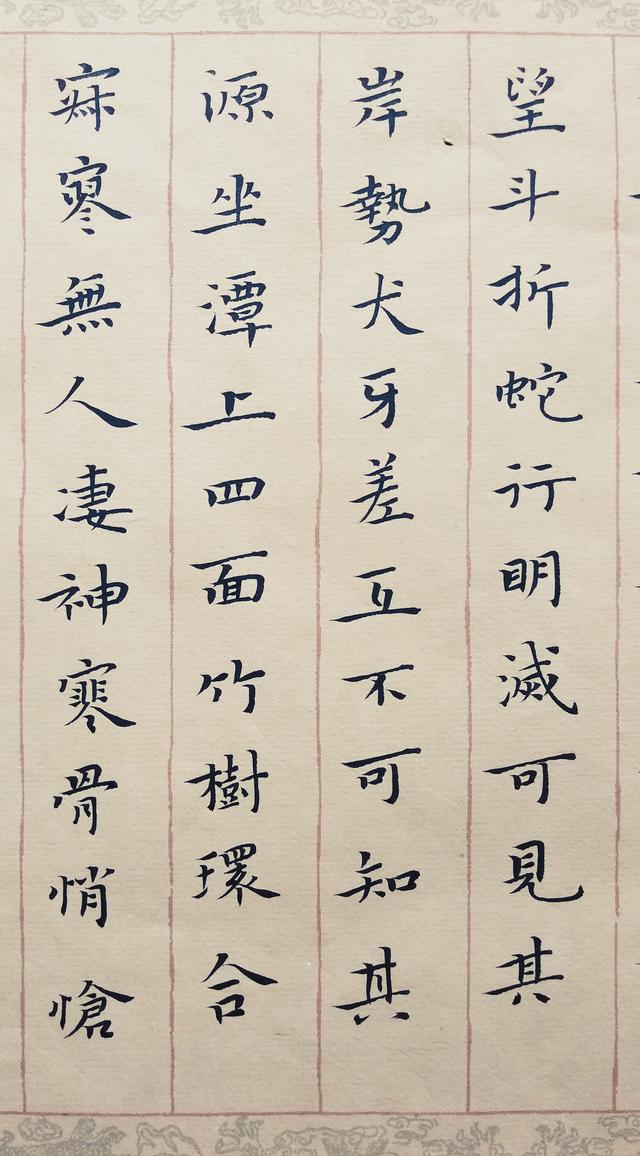 望斗折蛇行明滅可見其
岸勢犬牙差互不可知其
源坐潭上四面竹樹環合
寂寥無人凄神寒骨悄愴